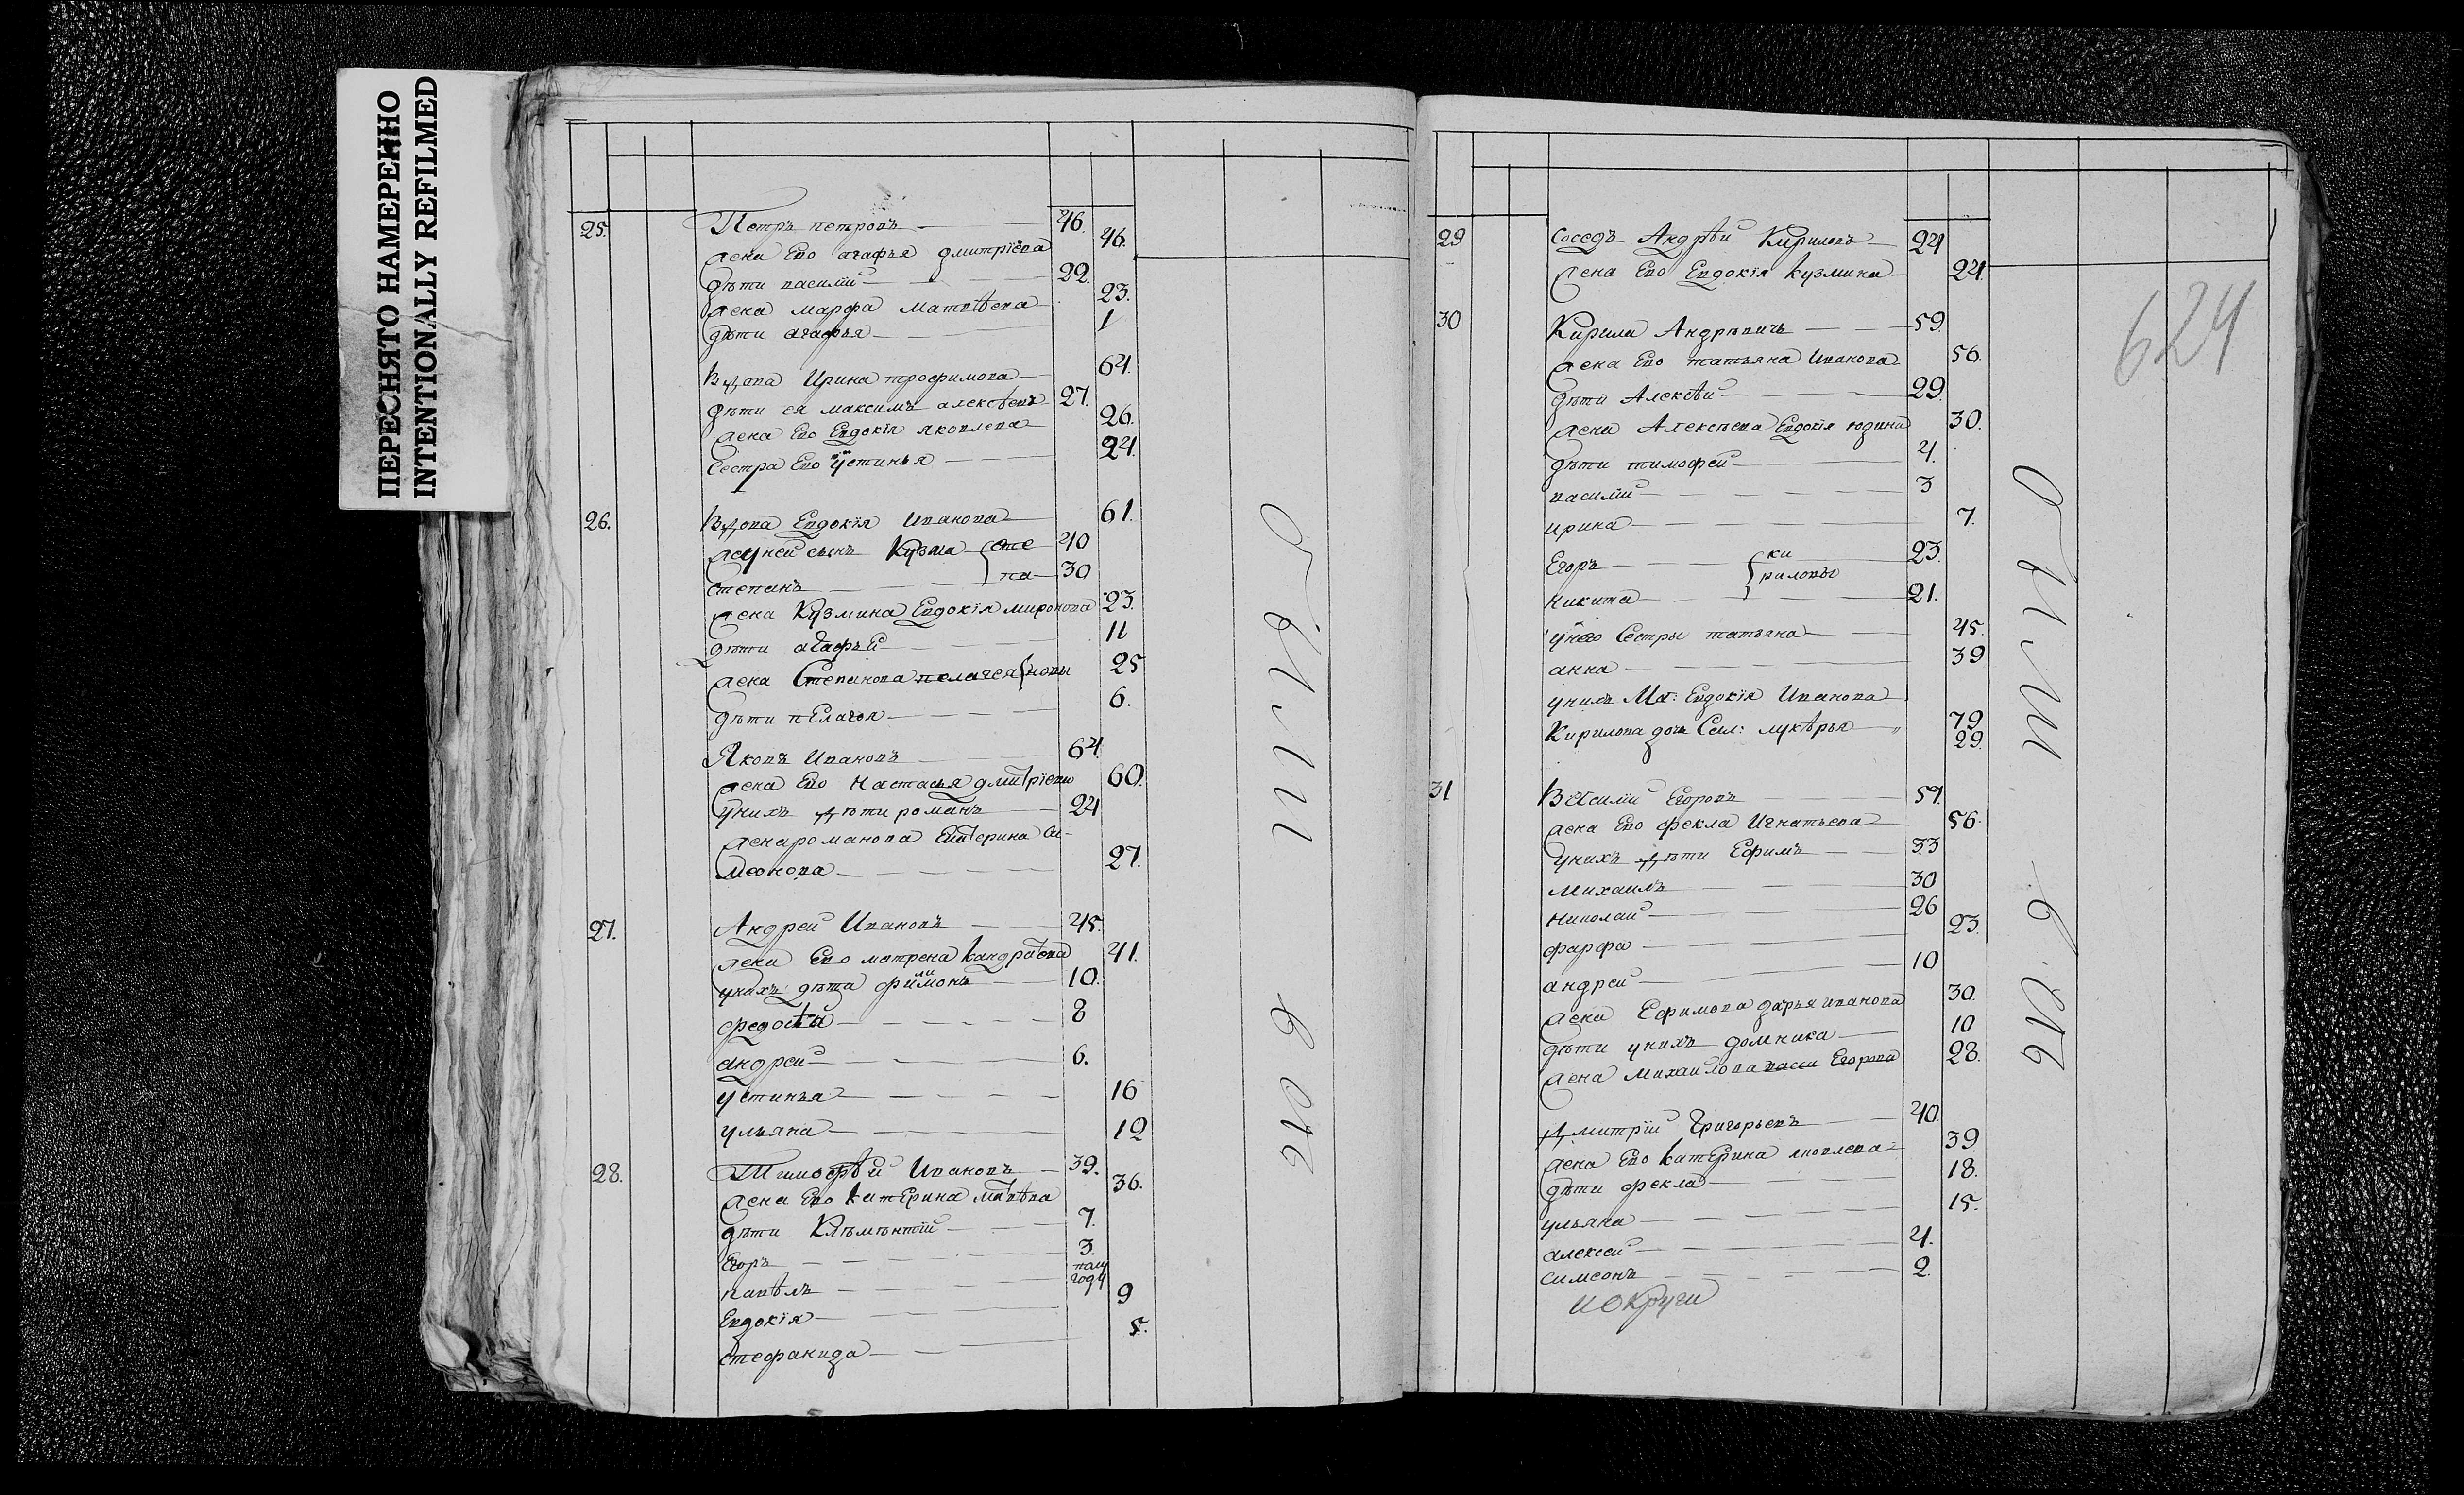 ПЕРЕСНЯТО НАМЕРЕННО
INTENTIONALLY REFILMED
25. Петръ петровъ 46.
жена Ево агафья дмитріева 46.
дѣти василій 22.
жена марфа матвѣева 23.
дѣти агафья 1
Вдова Ирина трофимова 64.
дѣти ея максимъ алексѣевъ 27.
жена Ево Евдокія яковлева 26.
Сестра Ево устинья 24.
26. Вдова Евдокія Иванова 61.
унеи сынъ Кузма 40
степанъ 30
жена Кузмина Евдокія миронова 23.
дѣти агафьи 11
жена Степанова пелагея 25
дѣти пЕлагея 6.
Яковъ Ивановъ 64
жена Ево настасья дмитріева 60.
унихъ дѣти романъ 24
жена романова Екатерина Си-
меонова 27.
27. Андреи Ивановъ 45.
жена Ево матрена кандратева 41.
унихъ дѣти филимонъ 10.
федосѣи 8
андреи 6.
устинья 16
ульяна 12
28. Тимофѣй Ивановъ 39.
жена Ево катЕрина матвѣва 36.
дѣти Клѣмѣнтіи 7.
Егоръ 3.
павѣлъ полу году
Евдокія 9
стефанида 5.
были в и с
29 сосѣдъ Андрѣи Кириловъ 24
жена Ево Евдокія кузмина 24
30 Кирила Андрѣевичъ 59.
жена Ево татьяна Иванова 56.
дѣти Алексѣи 29.
жена Алексѣева Евдокія юдина 30.
дѣти тимофеи 4.
василіи 3
ирина 7.
Егоръ 23.
кириловы
никита 21.
унего Сестры татьяна 45.
анна 39
унихъ Ма: Евдокія Иванова 79
Кирилова дочь лукѣрья 29.
31 Василіи Егоровъ 57.
жена Ево фекла Игнатьева 56.
унихъ дѣти Ефимъ 33
михаилъ 30
николаи 26
фарфа 23.
андреи 10
жена Ефимова дарья иванова 30.
дѣти унихъ домника 10
жена михаилова васи Егорова 28.
дмитріи григорьевъ 40.
жена Ево катЕрина яковлева 39.
дѣти фекла 18.
ульяна 15.
алексеи 4.
симеонъ 2.
624
были